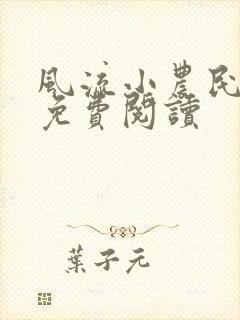 風流小農民
免費閱讀
葉子元